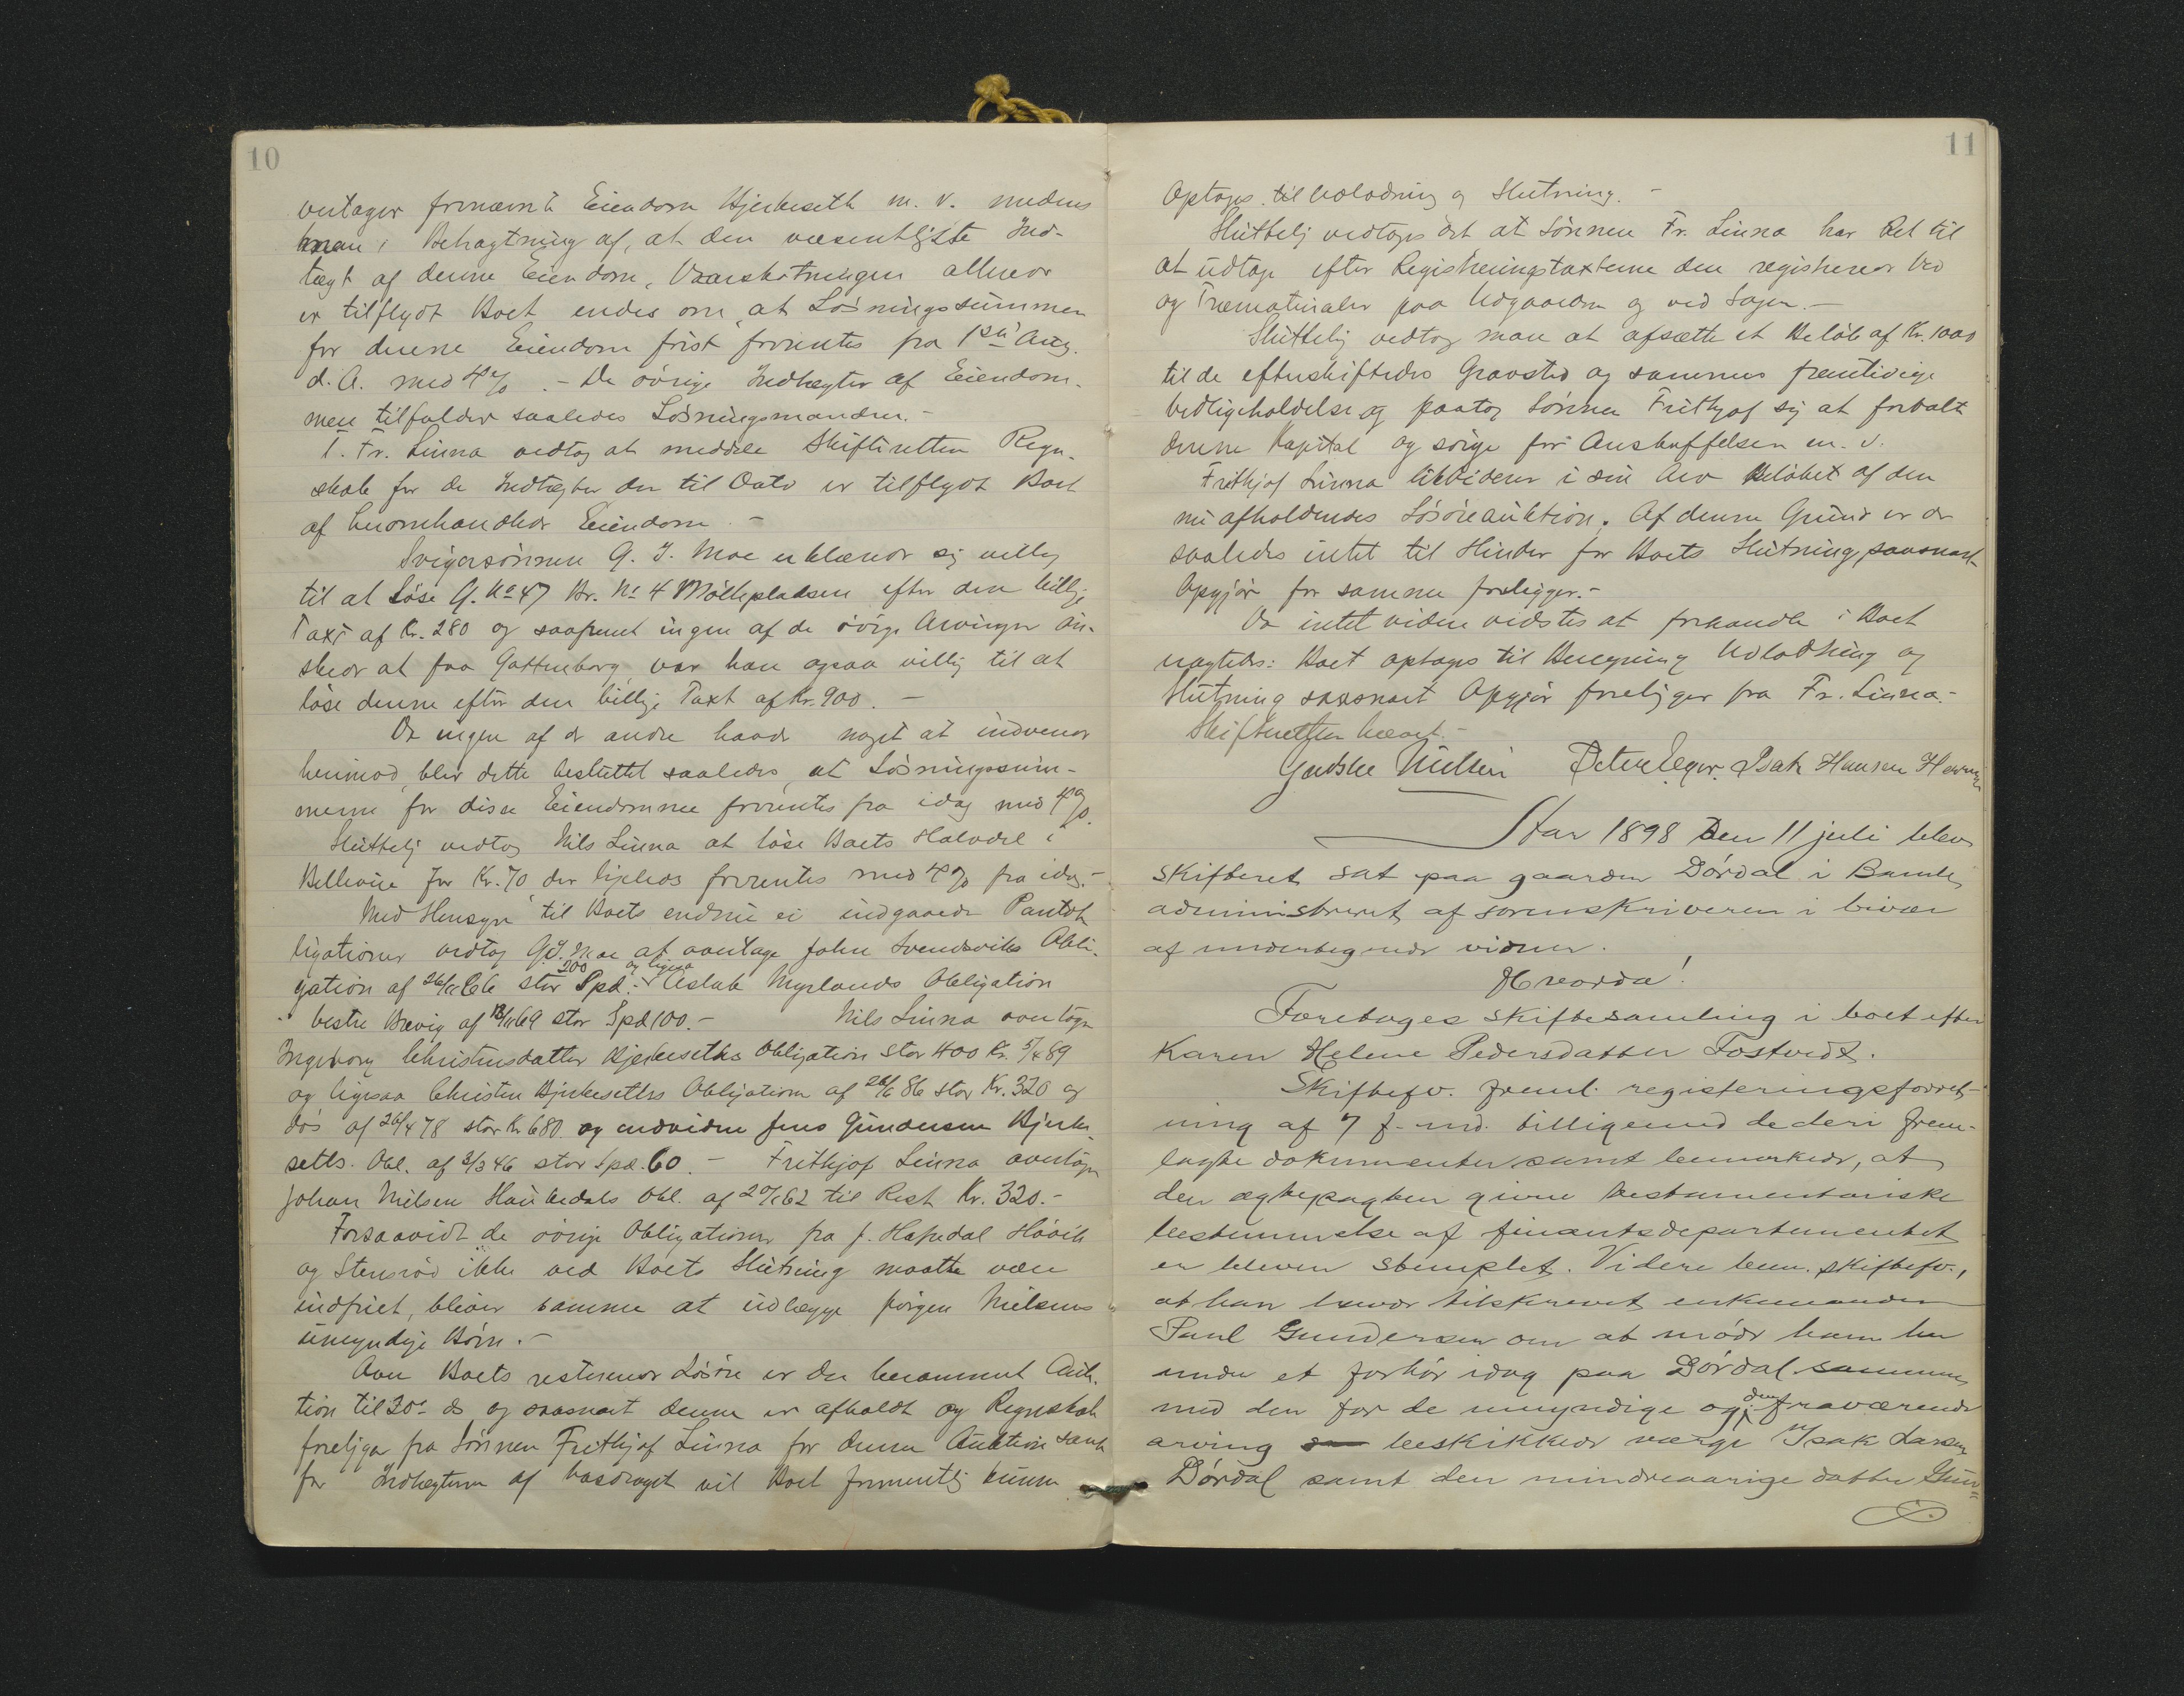 10
vertager fornævnte Eiendom Bjerkeseth m. v. medens
man i Betragtning af, at den væsentligste Ind-
tægt af denne Eiendom, Vaarskatningen allerede
er tilflydt Boet endes om, at Løsningssummen
for denne Eiendom først forrentes fra 1ste Aug.
d. A. med 4%. - De øvrige Indtægter af Eiendom-
men tilfalder saaledes Løsningsmanden. -
T. Fr. Linna vedtog at meddele Skifteretten Regn-
skab for de Indtægter der til Dato er tilflydt Boet
af heromhandlede Eiendom. -
Svigersønnen G. J. Moe erklærede sig villig
til at løse G. No 47 Br. No 4 Møllepladsen efter den billige
Taxt af Kr. 280 og saafremt ingen af de øvrige Arvinger øn-
skede at faa Gottenborg var han ogsaa villig til at
løse denne efter den billige Taxt af Kr. 900. -
Da ingen af de andre havde noget at indvende
herimod, blev dette besluttet saaledes, at Løsningssum-
merne for disse Eiendomme forrentes fra idag med 4%.
Sluttelig vedtog Nils Linna at løse Boets Halvdel i
Bellevue for Kr. 70 der ligeledes forrentes med 4% fra idag. -
Med Hensyn til Boets endnu ei indgaaede Pantob-
ligationer vedtog G. J. Moe at overtage John Svendsviks Obli-
200 og ligesaa
gation af 26/11 66 stor Spd. - Aslak Myrlands Obligation
vestre Brevig af 18/11 69 stor Spd 100. - Nils Linna overtager
Ingeborg Christensdatter Bjerkeseths Obligation stor 400 Kr. 5/4 89
og ligesaa Christen Bjerkeseths Obligation af 26/6 86 stor Kr. 320 og
do af 26/4 78 stor Kr 680. og endvidere Jens Gundersen Bjerke-
seths. Obl. af 3/3 46 stor Spd. 60. - Frithjof Linna overtager
Johan Nielsen Haukedals Obl. af 20/1 62 til Rest Kr. 320. -
Forsaavidt de øvrige Obligationer fra J. Hafsedal Høvik
og Stensrød ikke ved Boets Slutning maatte være
indfriet, bliver samme at udlægge Jørgen Nielsens
umyndige Børn. -
Over Boets resterende Løsøre er der berammet Auk-
tion til 30te ds og saasnart denne er afholdt og Regnskab
foreligger fra Sønnen Frithjof Linna for denne Auktion samt
for Indtægterne af Vasdraget vil Boet formentlig kunne
11
Optages til Udlodning og Slutning. -
Sluttelig vedtoges det at Sønnen Fr. Linna har Ret til
at udtage efter Registreringstaxterne den registrerede Ved
og Træmaterialer paa Udgaarden og ved Sagen. -
Sluttelig vedtog man at afsætte et Beløb af Kr. 1000
til de efterskiftedes Gravsted og sammes fremtidige
vedligeholdelse og paatog Sønnen Frithjof sig at forvalte
denne Kapital og sørge for Anskaffelsen m. v.
Frithjof Linna likviderer i sin Arv Beløbet af den
nu afholdendes Løsøreauktion. Af denne Grund er der
saaledes intet til Hinder for Boets Slutning, saasnart
Opgjør for samme foreligger. -
Da intet videre vidstes at forhandle i Boet
vagtedes: Boet optages til Beregning Udlodning og
Slutning saasnart Opgjør foreligger fra Fr. Linna. -
Skifteretten hævet. -
Godske Nielsen Peter Eeg Isak Hansen
Aar 1898 den 11 juli blev
skifteret sat paa gaarden Dørdal i Bamle
administreret af sorenskriveren i bivær
af undertegnede vidner.
Hvorda!
Foretoges skiftesamling i boet efter
Karen Helene Pedersdatter Tostvedt.
Skiftefv. freml. registeringsforret-
ning af 7 f. md. tilligemed de deri frem-
lagte dokumenter samt bemærkede, at
den ægtepagten givne testamentariske
bestemmelse af finantsdepartementet
er bleven stemplet. Videre bem. skiftefv.,
at han havde tilskrevet enkemanden
Paul Gundersen om at møde ham her
under et forhør idag paa Dørdal sammen
den
med den for de umyndige og fraværende
arving beskikkede værge Isak Larsen
Dørdal samt den mindreaarige datter Gun-